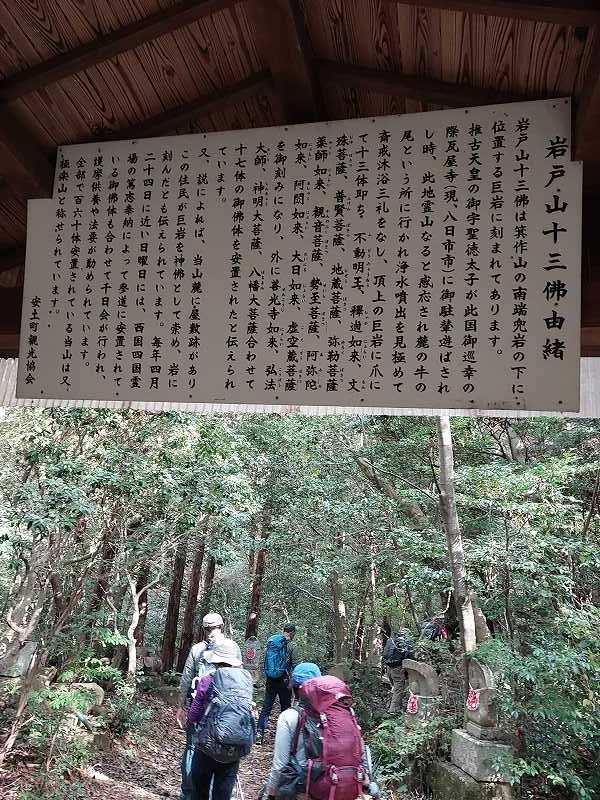 岩戸山十三佛由緒
岩戸山十三佛は箕作山の南端兜岩の下に
位置する巨岩に刻まれてあります。
推古天皇の御宇聖徳太子が此国御巡幸の
際瓦屋寺（現、八日市市）に御駐輦遊ばされ
し時、此地霊山なると感応され麓の牛の
尾という所に行かれ浄水噴出を見極めて
斎戒沐浴三礼をなし、頂上の巨岩に爪に
て十三体即ち、不動明王、釋迦如来、文
殊菩薩、普賢菩薩、地蔵菩薩、弥勒菩薩
薬師如来、観音菩薩、勢至菩薩、阿弥陀
如来、阿閦如来、大日如来、虚空蔵菩薩
を御刻みになり、外に善光寺如来、弘法
大師、神明大菩薩、八幡大菩薩合わせて
十七体の御佛体を安置されたと伝えられ
ています。
又、説によれば、当山麓に屋敷跡があり
この住民が巨岩を神佛として崇め、岩に
刻んだとも伝えられています。毎年四月
二十四日に近い日曜日には、西国四国霊
場の篤志奉納によって参道に安置されて
いる御佛体も合わせて千日会が行われ、
護摩供養や法要が勤められています。
全部で百六十体安置されている当山は又、
極楽山と称せられています。
安土町観光協会